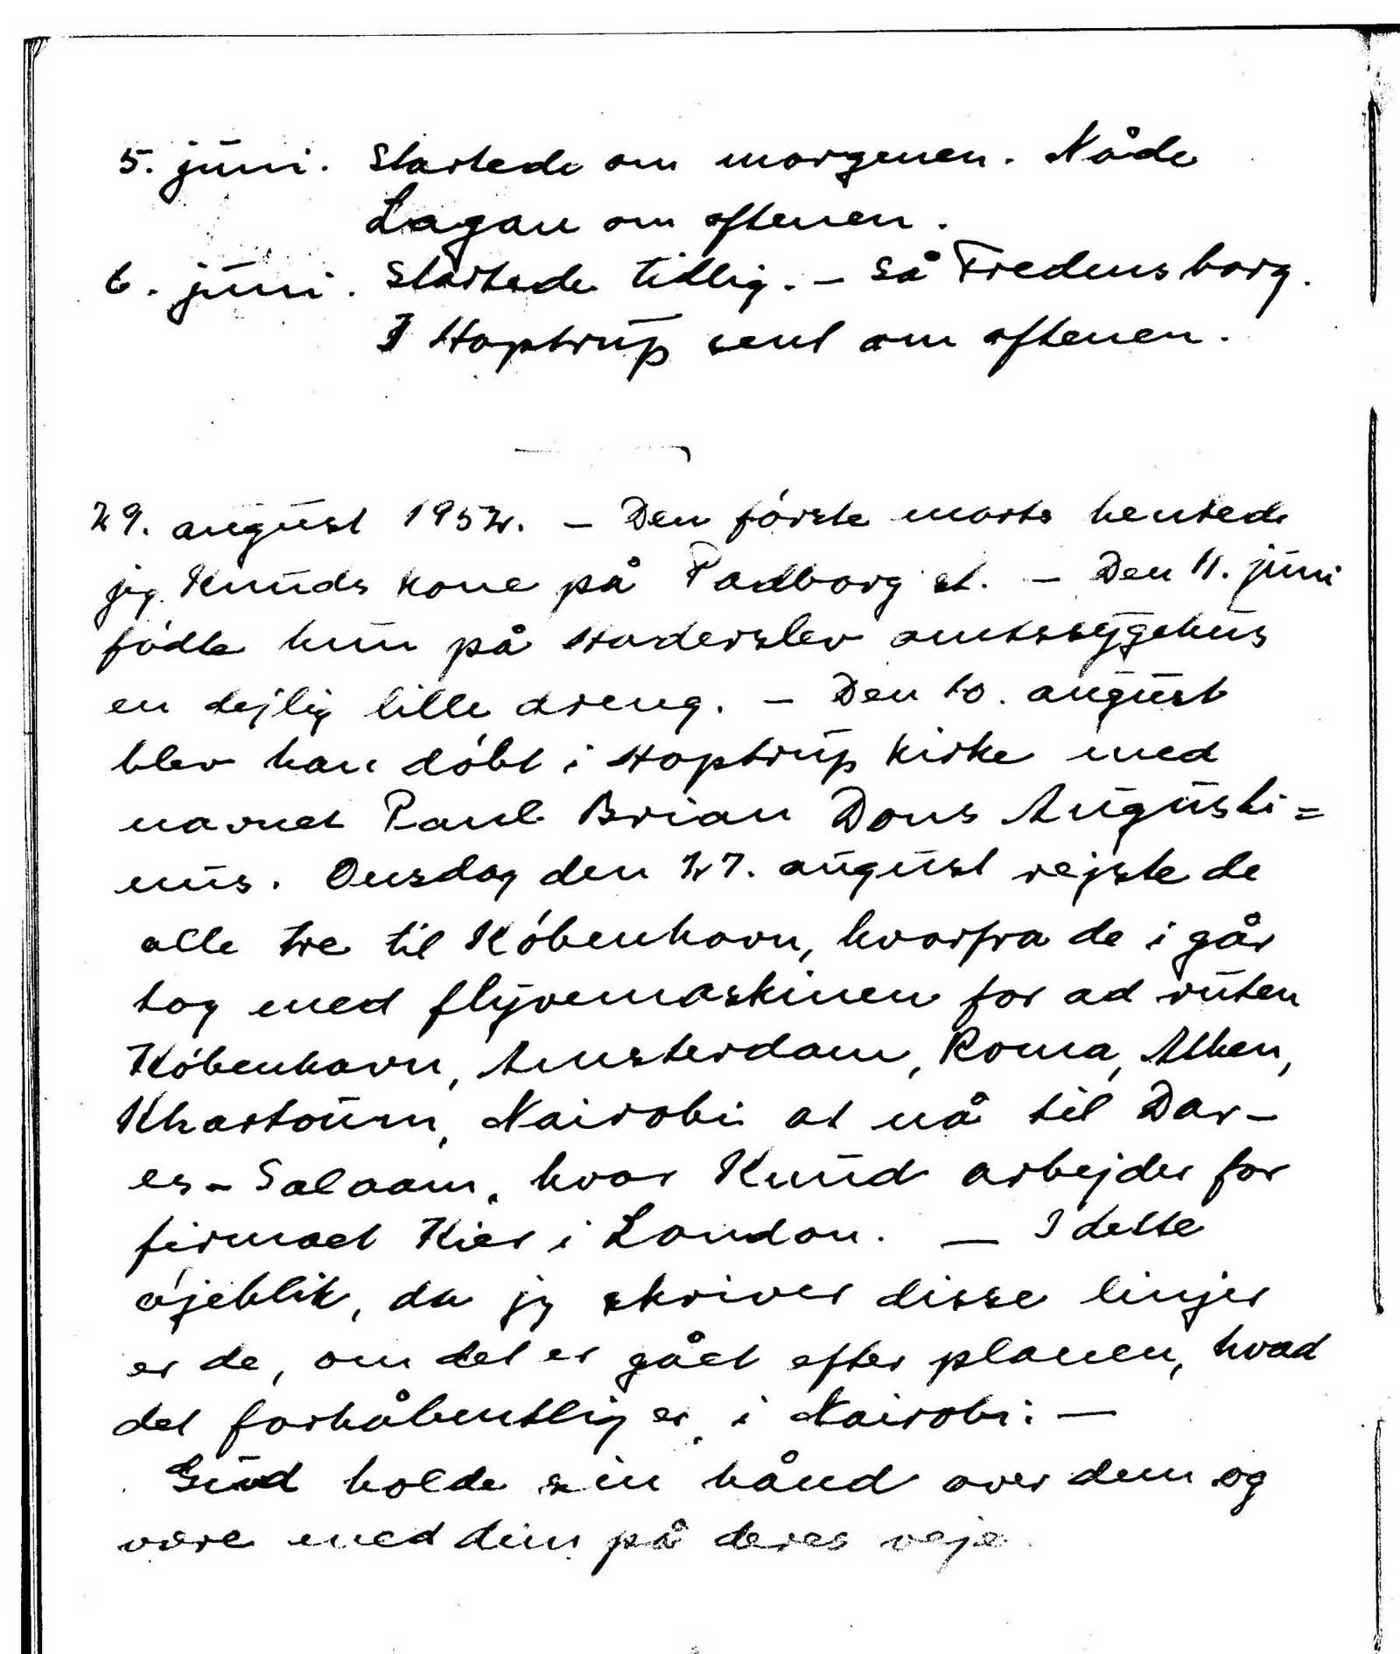 5. juni. Startede om morgenen. Nåde
Lagan om aftenen.
6. juni. Startede tidlig. – Så Fredensborg.
I Hoptrup sent om aftenen.
29. august 1952. – Den første marts hentede
jeg Knuds kone på Padborg st. – Den 11. juni
fødte hun på Haderslev amtssygehus
en dejlig lille dreng. – Den 10. august
blev han døbt i Hoptrup kirke med
navnet Paul Brian Dons Augusti=
nus. Onsdag den 27. august rejste de
alle tre til København, hvorfra de i går
tog med flyvemaskinen for ad ruten
København, Amsterdam, Roma, Athen,
Khartoum, Nairobi at nå til Dar-
es-Salaam, hvor Knud arbejder for
firmaet Kier i London. – I dette
øjeblik, da jeg skriver disse linjer
er de, om det er gået efter planen, hvad
det forhåbentlig er, i Nairobi: –
Gud holde sin hånd over dem og
være med dem på deres veje.